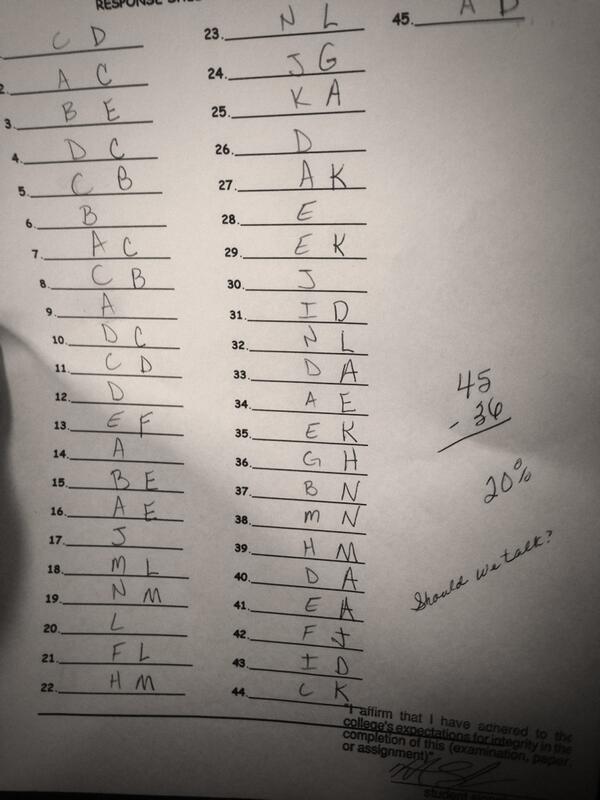 RESPONSE
C D
2. A C
3. B E
4. D C
5. C B
6. B
7. A C
8. C B
9. A
10. D C
11. C D
12. D
13. E F
14. A
15. B E
16. A E
17. J
18. M L
19. N M
20. L
21. F L
22. H M
23. N L
24. J G
25. K A
26. D
27. A K
28. E
29. E K
30. J
31. I D
32. N L
33. D A
34. A E
35. E K
36. G H
37. B N
38. M N
39. H M
40. D A
41. E A
42. F J
43. I D
44. C K
45. A D
45
- 36
20%
Should we talk?
"I affirm that I have adhered to the
college's expectations for integrity in the
completion of this (examination, paper,
or assignment)"
student